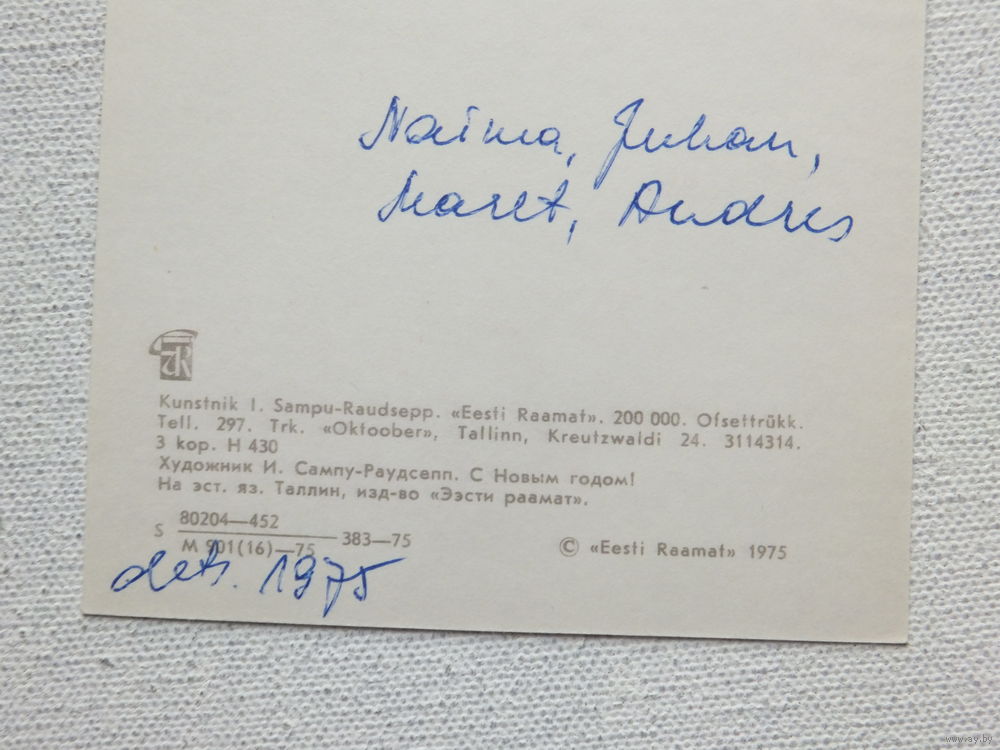 Naima, Juhan,
Maret, Andres
Kunstnik I. Sampu-Raudsepp. «Eesti Raamat». 200 000. Ofsettrükk.
Tell. 297. Trk. «Oktoober», Tallinn, Kreutzwaldi 24. 3114314.
3 kop. H 430
Художник И. Сампу-Раудсепп. С Новым годом!
На эст. яз. Таллин, изд-во «Ээсти раамат».
S 80204—452
М 901(16)—75 383—75
© «Eesti Raamat» 1975
dets. 1975
www.ay.by